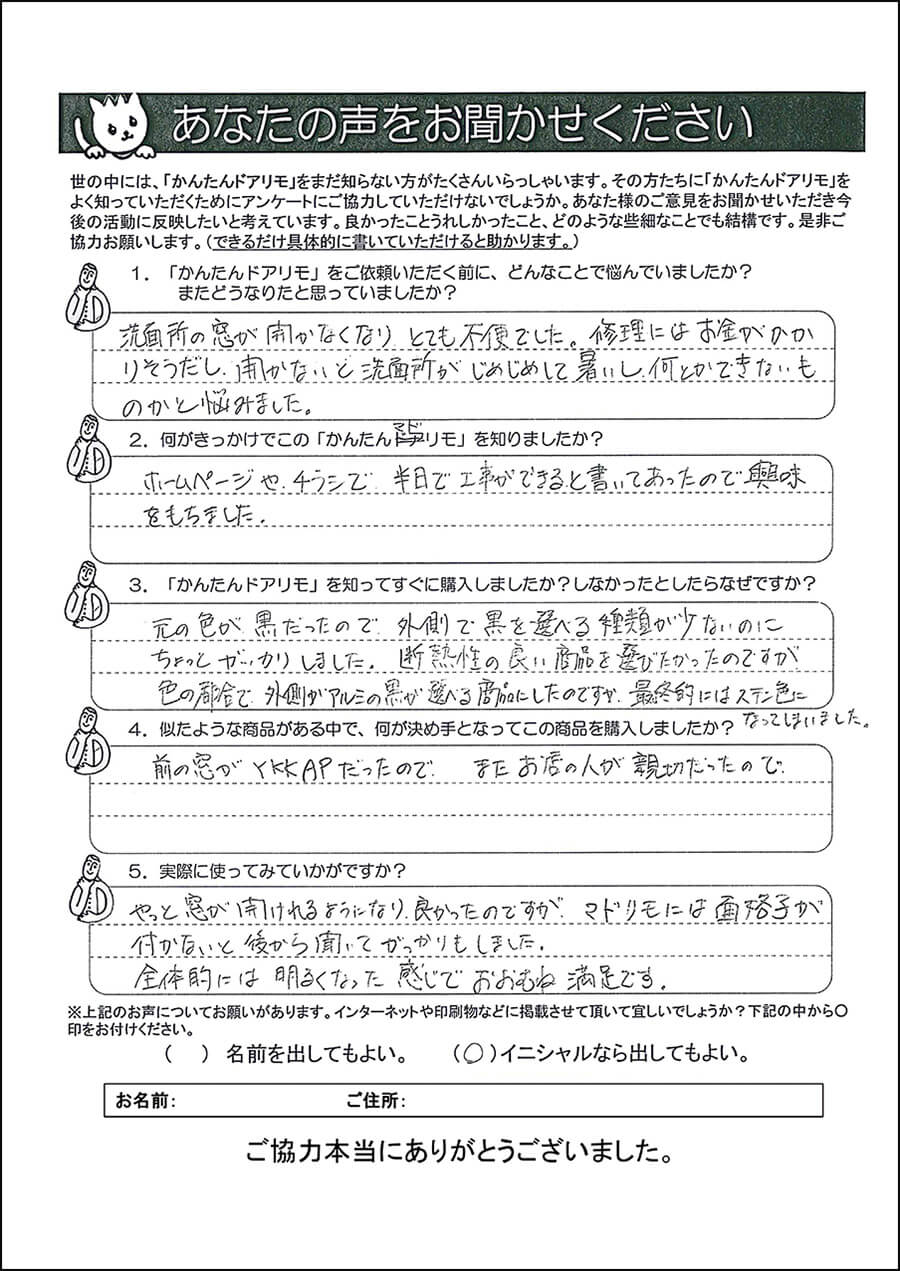 あなたの声をお聞かせください
世の中には、「かんたんドアリモ」をまだ知らない方がたくさんいらっしゃいます。その方たちに「かんたんドアリモ」を
よく知っていただくためにアンケートにご協力していただけないでしょうか。あなた様のご意見をお聞かせいただき今
後の活動に反映したいと考えています。良かったことうれしかったこと、どのような些細なことでも結構です。是非ご
協力お願いします。（できるだけ具体的に書いていただけると助かります。）
1．「かんたんドアリモ」をご依頼いただく前に、どんなことで悩んでいましたか？
またどうなりたと思っていましたか？
洗面所の窓が開かなくなり とても不便でした。修理にはお金がかか
りそうだし、開かないと洗面所がじめじめして暑いし、何とかできないも
のかと悩みました。
マド
2．何がきっかけでこの「かんたんドアリモ」を知りましたか？
ホームページや、チラシで 半日で工事ができると書いてあったので興味
をもちました。
3．「かんたんドアリモ」を知ってすぐに購入しましたか？しなかったとしたらなぜですか？
元の色が黒だったので 外側で黒を選べる種類が少ないのに
ちょっとがっかりしました。断熱性の良い商品を選びたかったのですが
色の都合で、外側がアルミの黒が選べる商品にしたのですが、最終的にはステン色に
なってしまいました。
4．似たような商品がある中で、何が決め手となってこの商品を購入しましたか？
前の窓がYKKAPだったので、 またお店の人が親切だったので、
5．実際に使ってみていかがですか？
やっと窓が開けれるようになり、良かったのですが、マドリモには面格子が
付かないと後から聞いてがっかりもしました。
全体的には明るくなった感じでおおむね満足です。
※上記のお声についてお願いがあります。インターネットや印刷物などに掲載させて頂いて宜しいでしょうか？下記の中から〇
印をお付けください。
（ ）名前を出してもよい。 （〇）イニシャルなら出してもよい。
お名前： ご住所：
ご協力本当にありがとうございました。